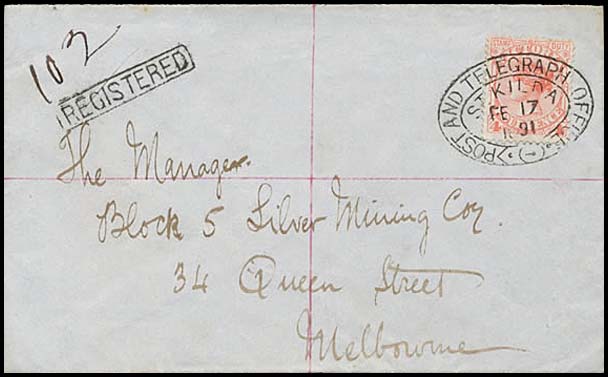 102
REGISTERED
STAMP DUTY
POST AND TELEGRAPH OFFICE
ST KILDA
FE 17
91
The Manager
Block 5 Silver Mining Coy.
34 Queen Street
Melbourne